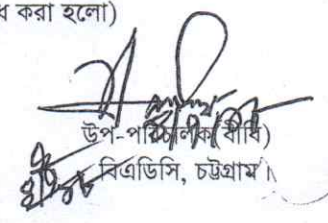 ধ করা হলো)
উপ-পরিচালক(বীবি)
বিএডিসি, চট্টগ্রাম।